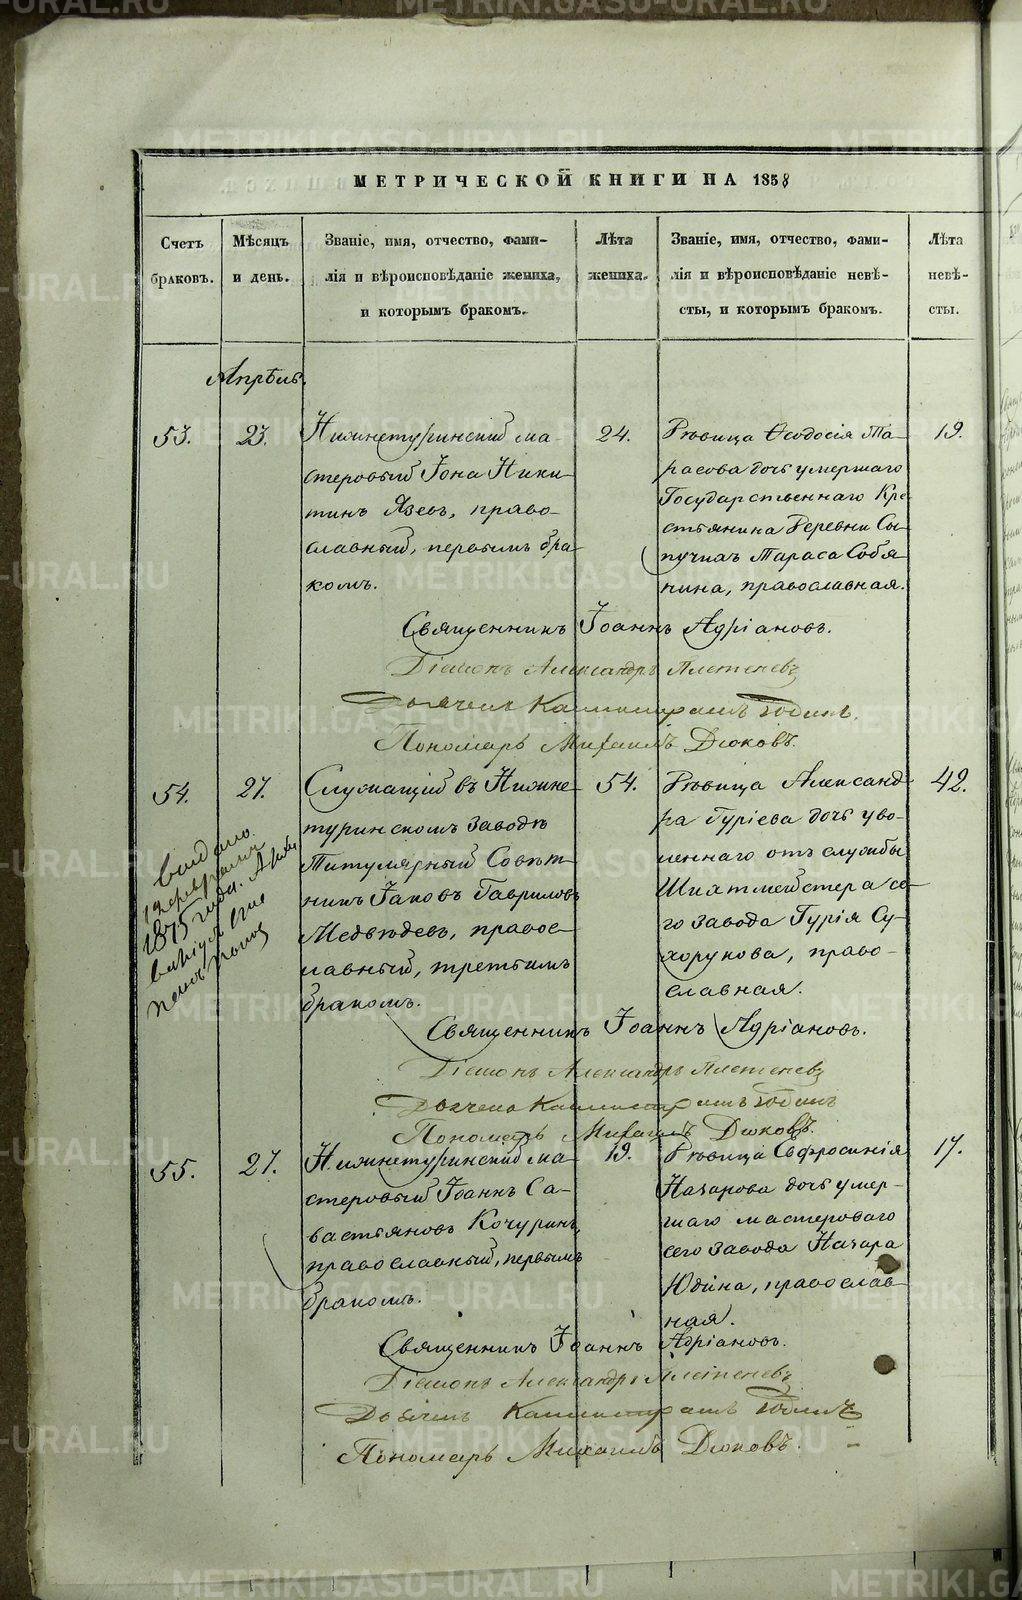 МЕТРИЧЕСКОЙ КНИГИ НА 1858
Счетъ браковъ.
Мѣсяцъ и день.
Званіе, имя, отчество, фами-
лія и вѣроисповѣданіе жениха,
и которымъ бракомъ.
Лѣта жениха.
Званіе, имя, отчество, фами-
лія и вѣроисповѣданіе невѣ-
сты, и которымъ бракомъ.
Лѣта невѣ-
сты.
Апрѣль.
53.
23.
Нижнетуринскій ма-
стеровый Іона Ники-
тинъ Язевъ, право-
славный, первымъ бра-
комъ.
24.
Дѣвица Ѳеодосія Та-
расова дочь умершаго
Государственнаго Кре-
стьянина Деревни Сы-
пучихъ Тараса Собя-
нина, православная.
19.
Священникъ Іоаннъ Адріановъ.
Діаконъ Александръ Плетеневъ
Дьячекъ Каллистратъ Юдинъ.
Пономарь Михаилъ Дюковъ.
54.
27.
Служащій въ Нижне-
туринскомъ заводѣ
Титулярный Совѣт-
никъ Іаковъ Гавриловъ
Медвѣдевъ, правос-
лавный, третьимъ
бракомъ.
54.
Дѣвица Александ-
ра Гуріева дочь уво-
леннаго отъ службы
Шихтмейстера се-
го завода Гурія Су-
хорукова, право-
славная.
42.
1875 года.
Священникъ Іоаннъ Адріановъ.
Діаконъ Александръ Плетеневъ
Дьячекъ Каллистратъ Юдинъ
Пономарь Михаилъ Дюковъ.
55.
27.
Нижнетуринскій ма-
стеровый Іоаннъ Са-
вастьяновъ Кочуринъ,
православный, первымъ
бракомъ.
19.
Дѣвица Евфросинія
Назарова дочь умер-
шаго мастероваго
сего завода Назара
Юдина, православ-
ная.
17.
Священникъ Іоаннъ Адріановъ.
Діаконъ Александръ Плетеневъ
Дьячекъ Каллистратъ Юдинъ
Пономарь Михаилъ Дюковъ.
METRIKI.GASO-URAL.RU